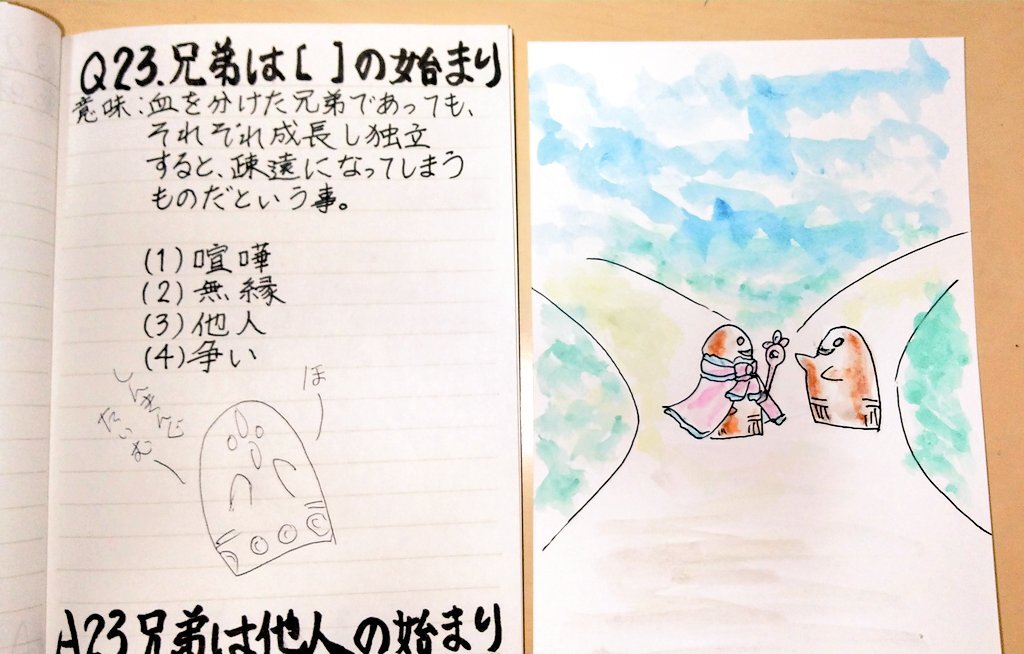 Q23.兄弟は[ ]の始まり
意味:血を分けた兄弟であっても、
それぞれ成長し独立
すると、疎遠になってしまう
ものだという事。
(1)喧嘩
(2)無縁
(3)他人
(4)争い
ほ
しんきんぐ
たいむ
A23兄弟は他人の始まり